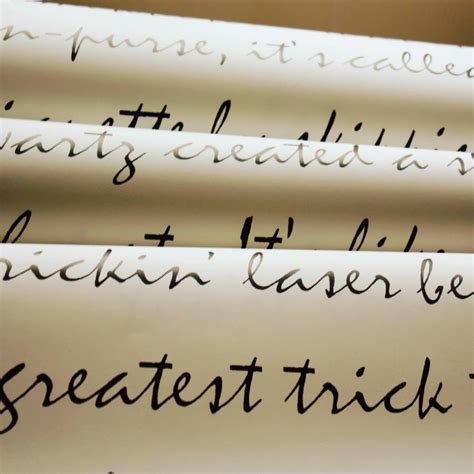 n-purse, it's called
wartz created a s
It's like
rickin' laser be
greatest trick t